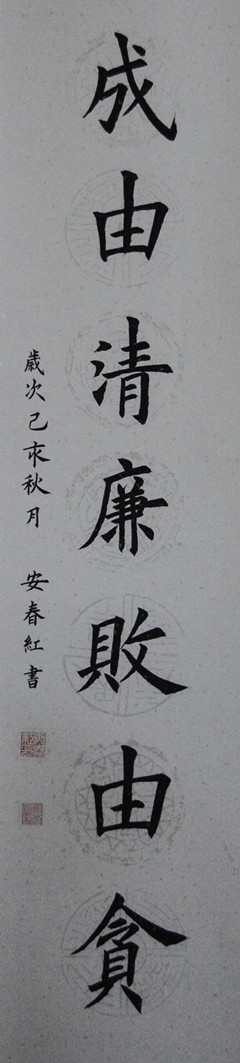 成由清廉敗由貪
歲次己亥秋月 安春紅書